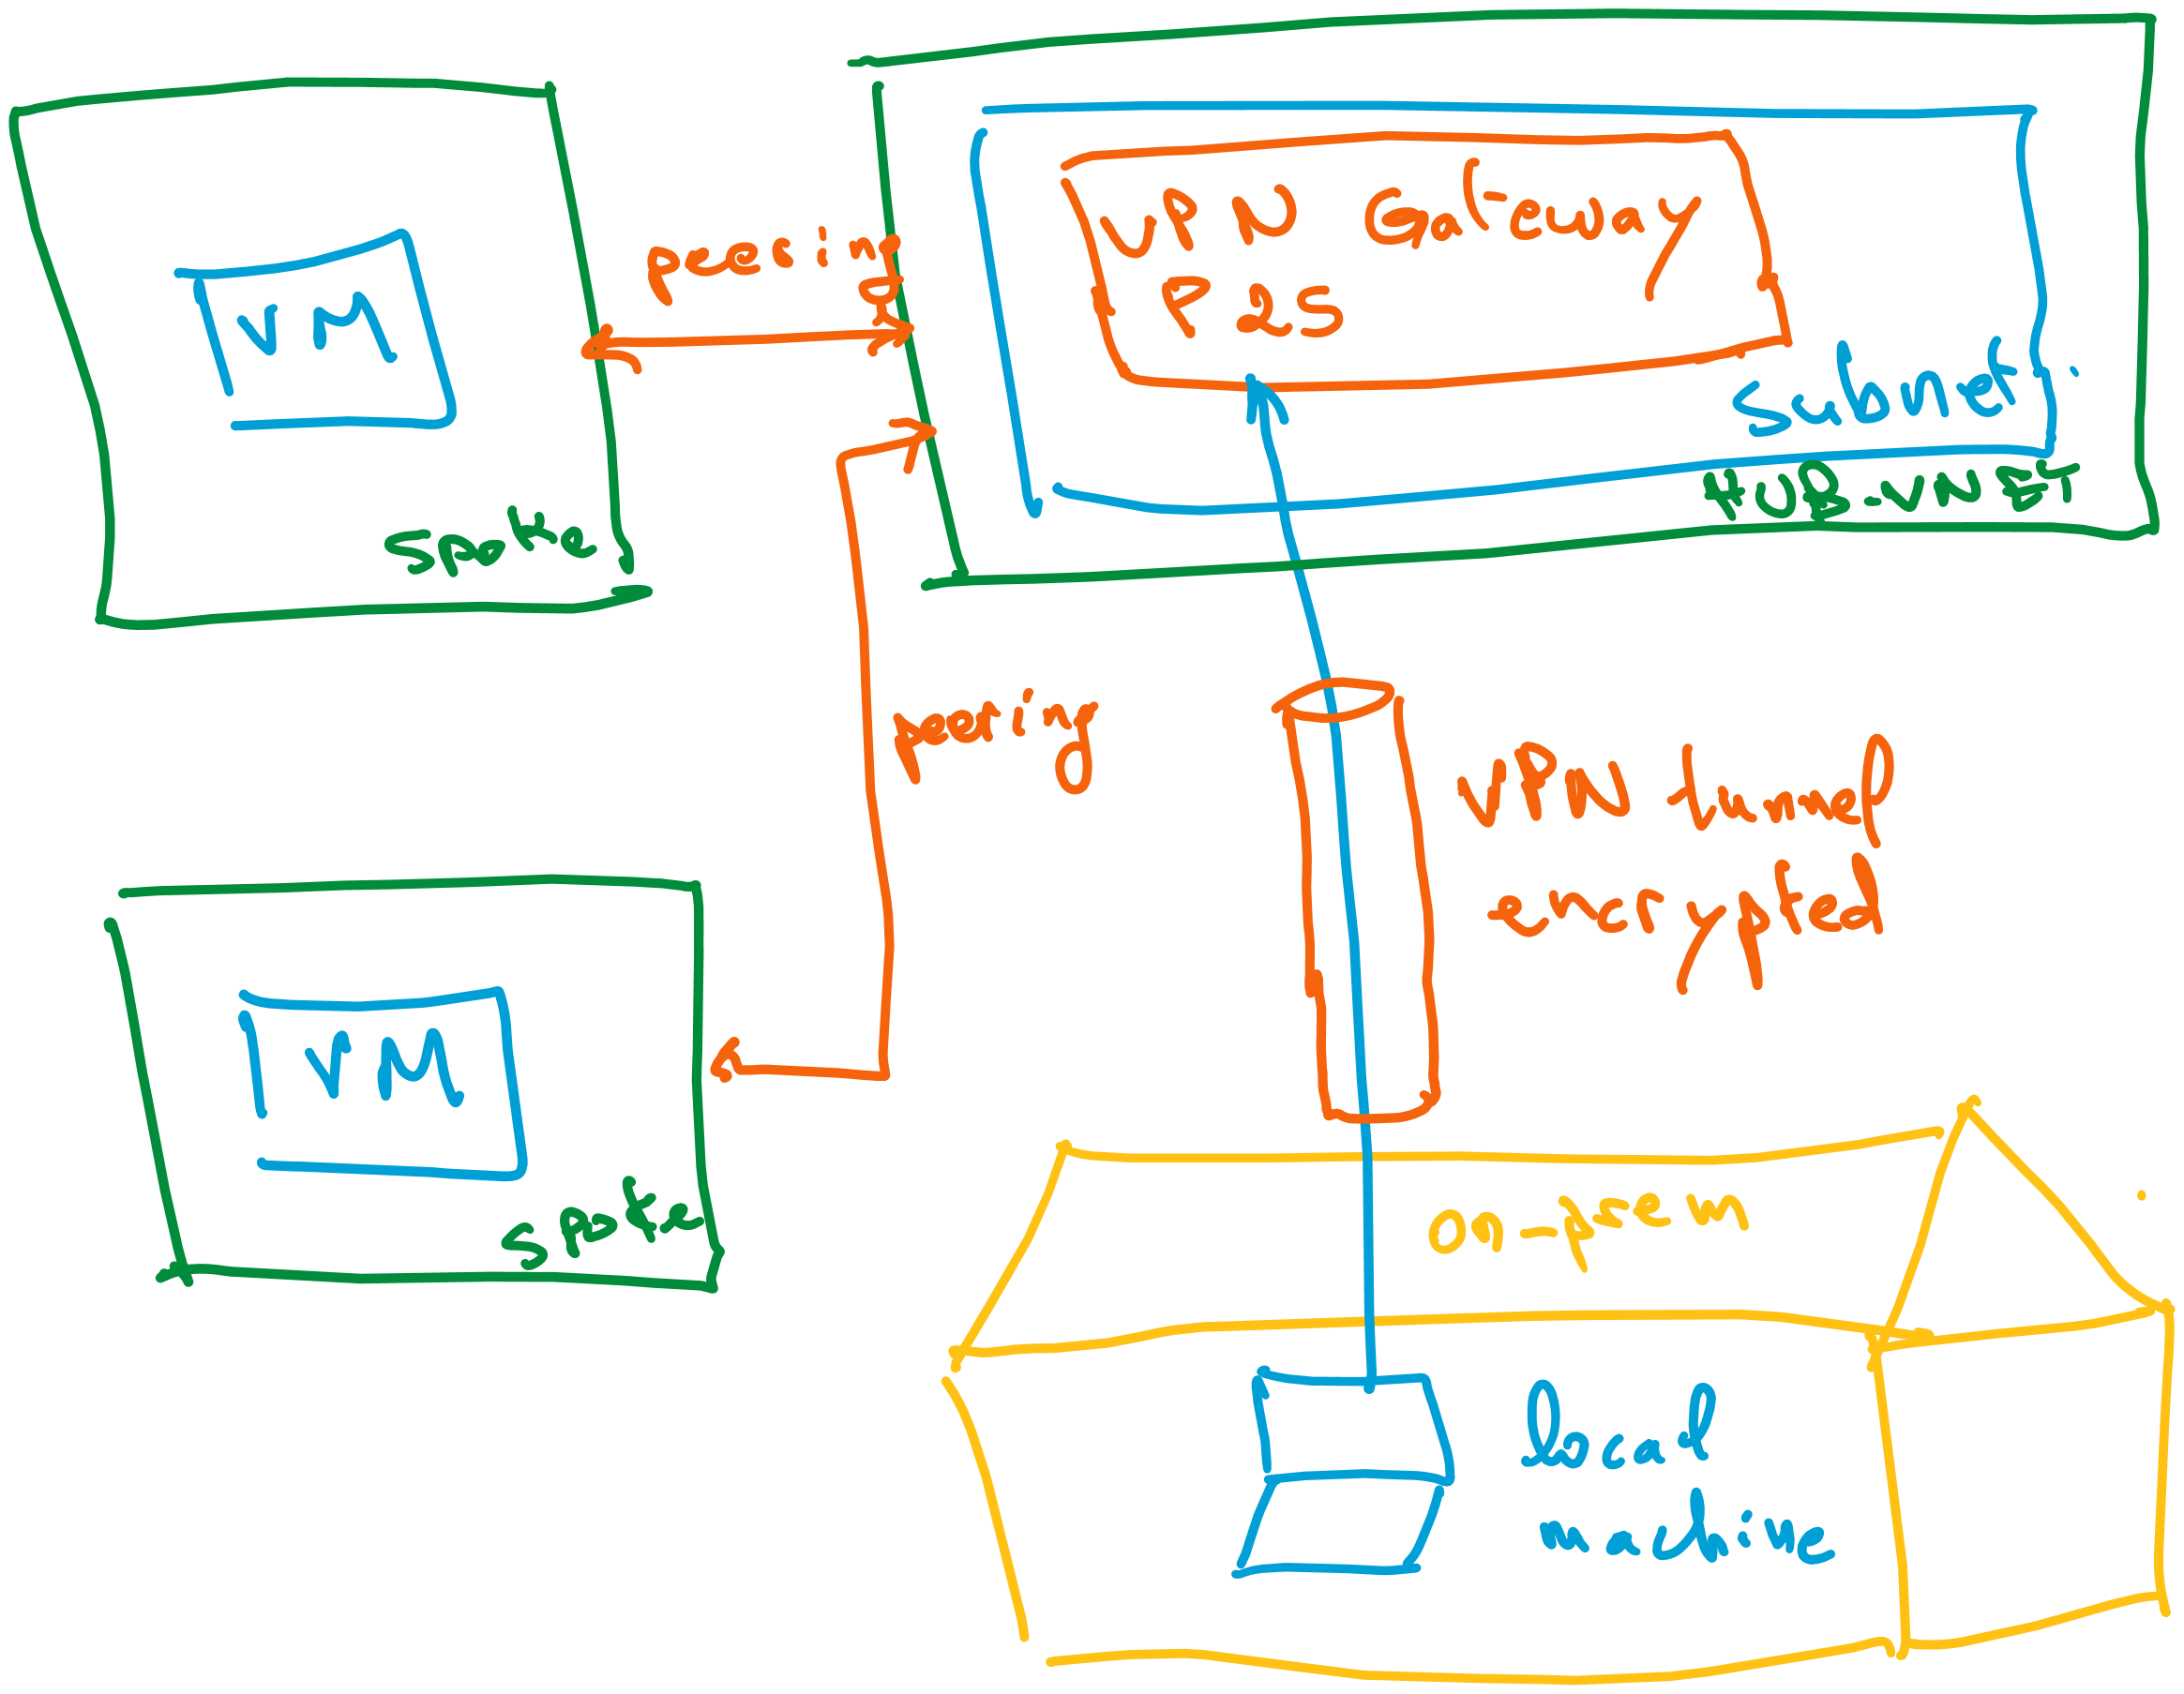 VM
spoke
peering
VPN Gateway
P2S
subnet
HUB-VNET
peering
VPN tunnel
encrypted
VM
spoke
on-prem
local
machine